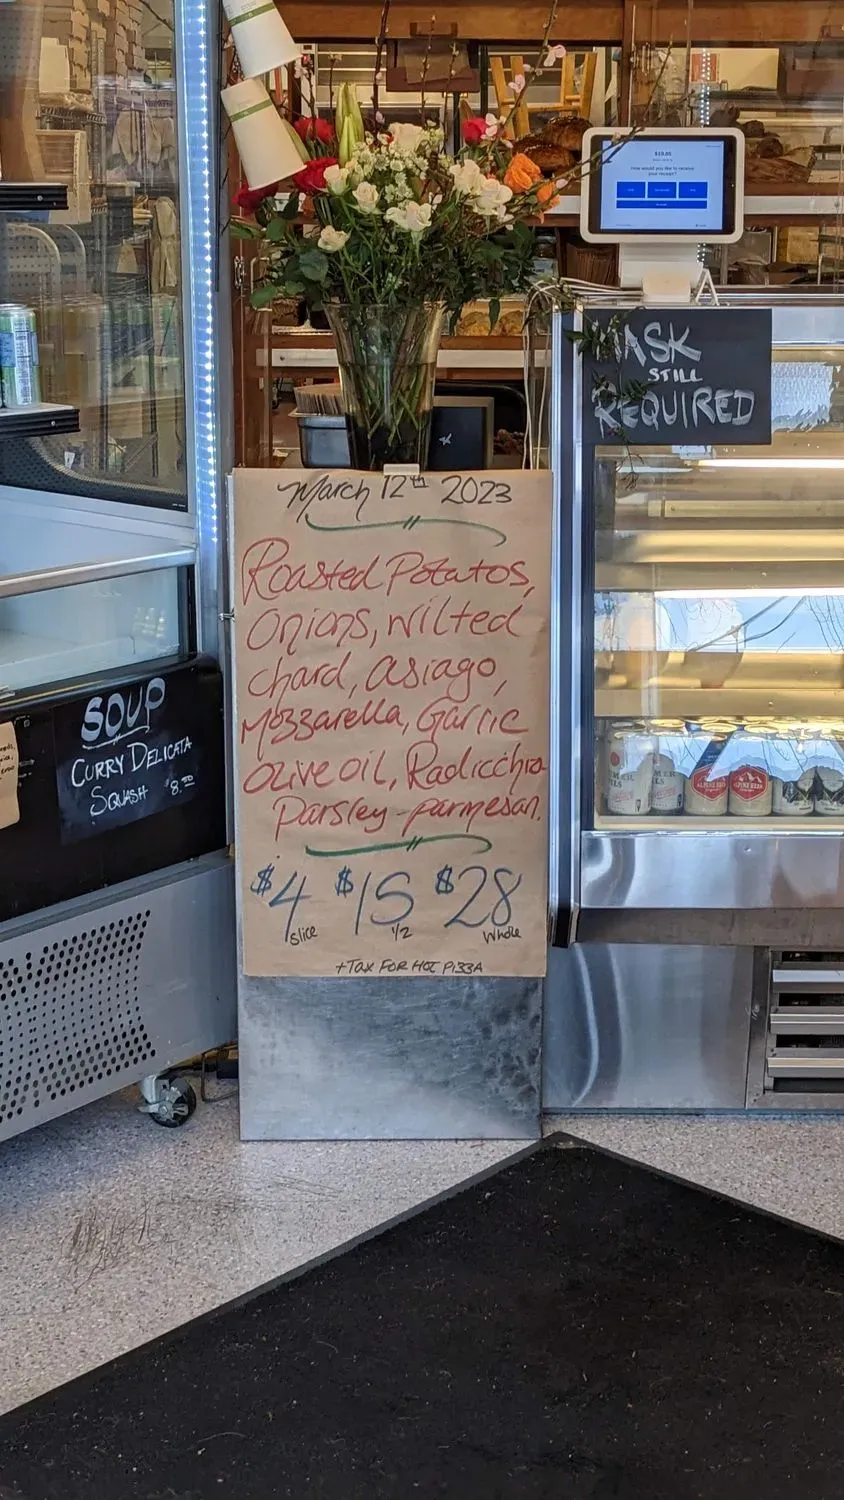 $19.85
How would you like to receive
your receipt?
MASK
STILL
REQUIRED
March 12th 2023
Roasted Potatos,
Onions, wilted
chard, asiago,
Mozzarella, Garlic
Olive oil, Radicchio
Parsley-parmesan.
$4 $15 $28
slice 1/2 whole
+Tax FOR HOT PIZZA
SOUP
CURRY DELICATA
SQUASH 8.00
ALPINE BEER
ALPINE BEER